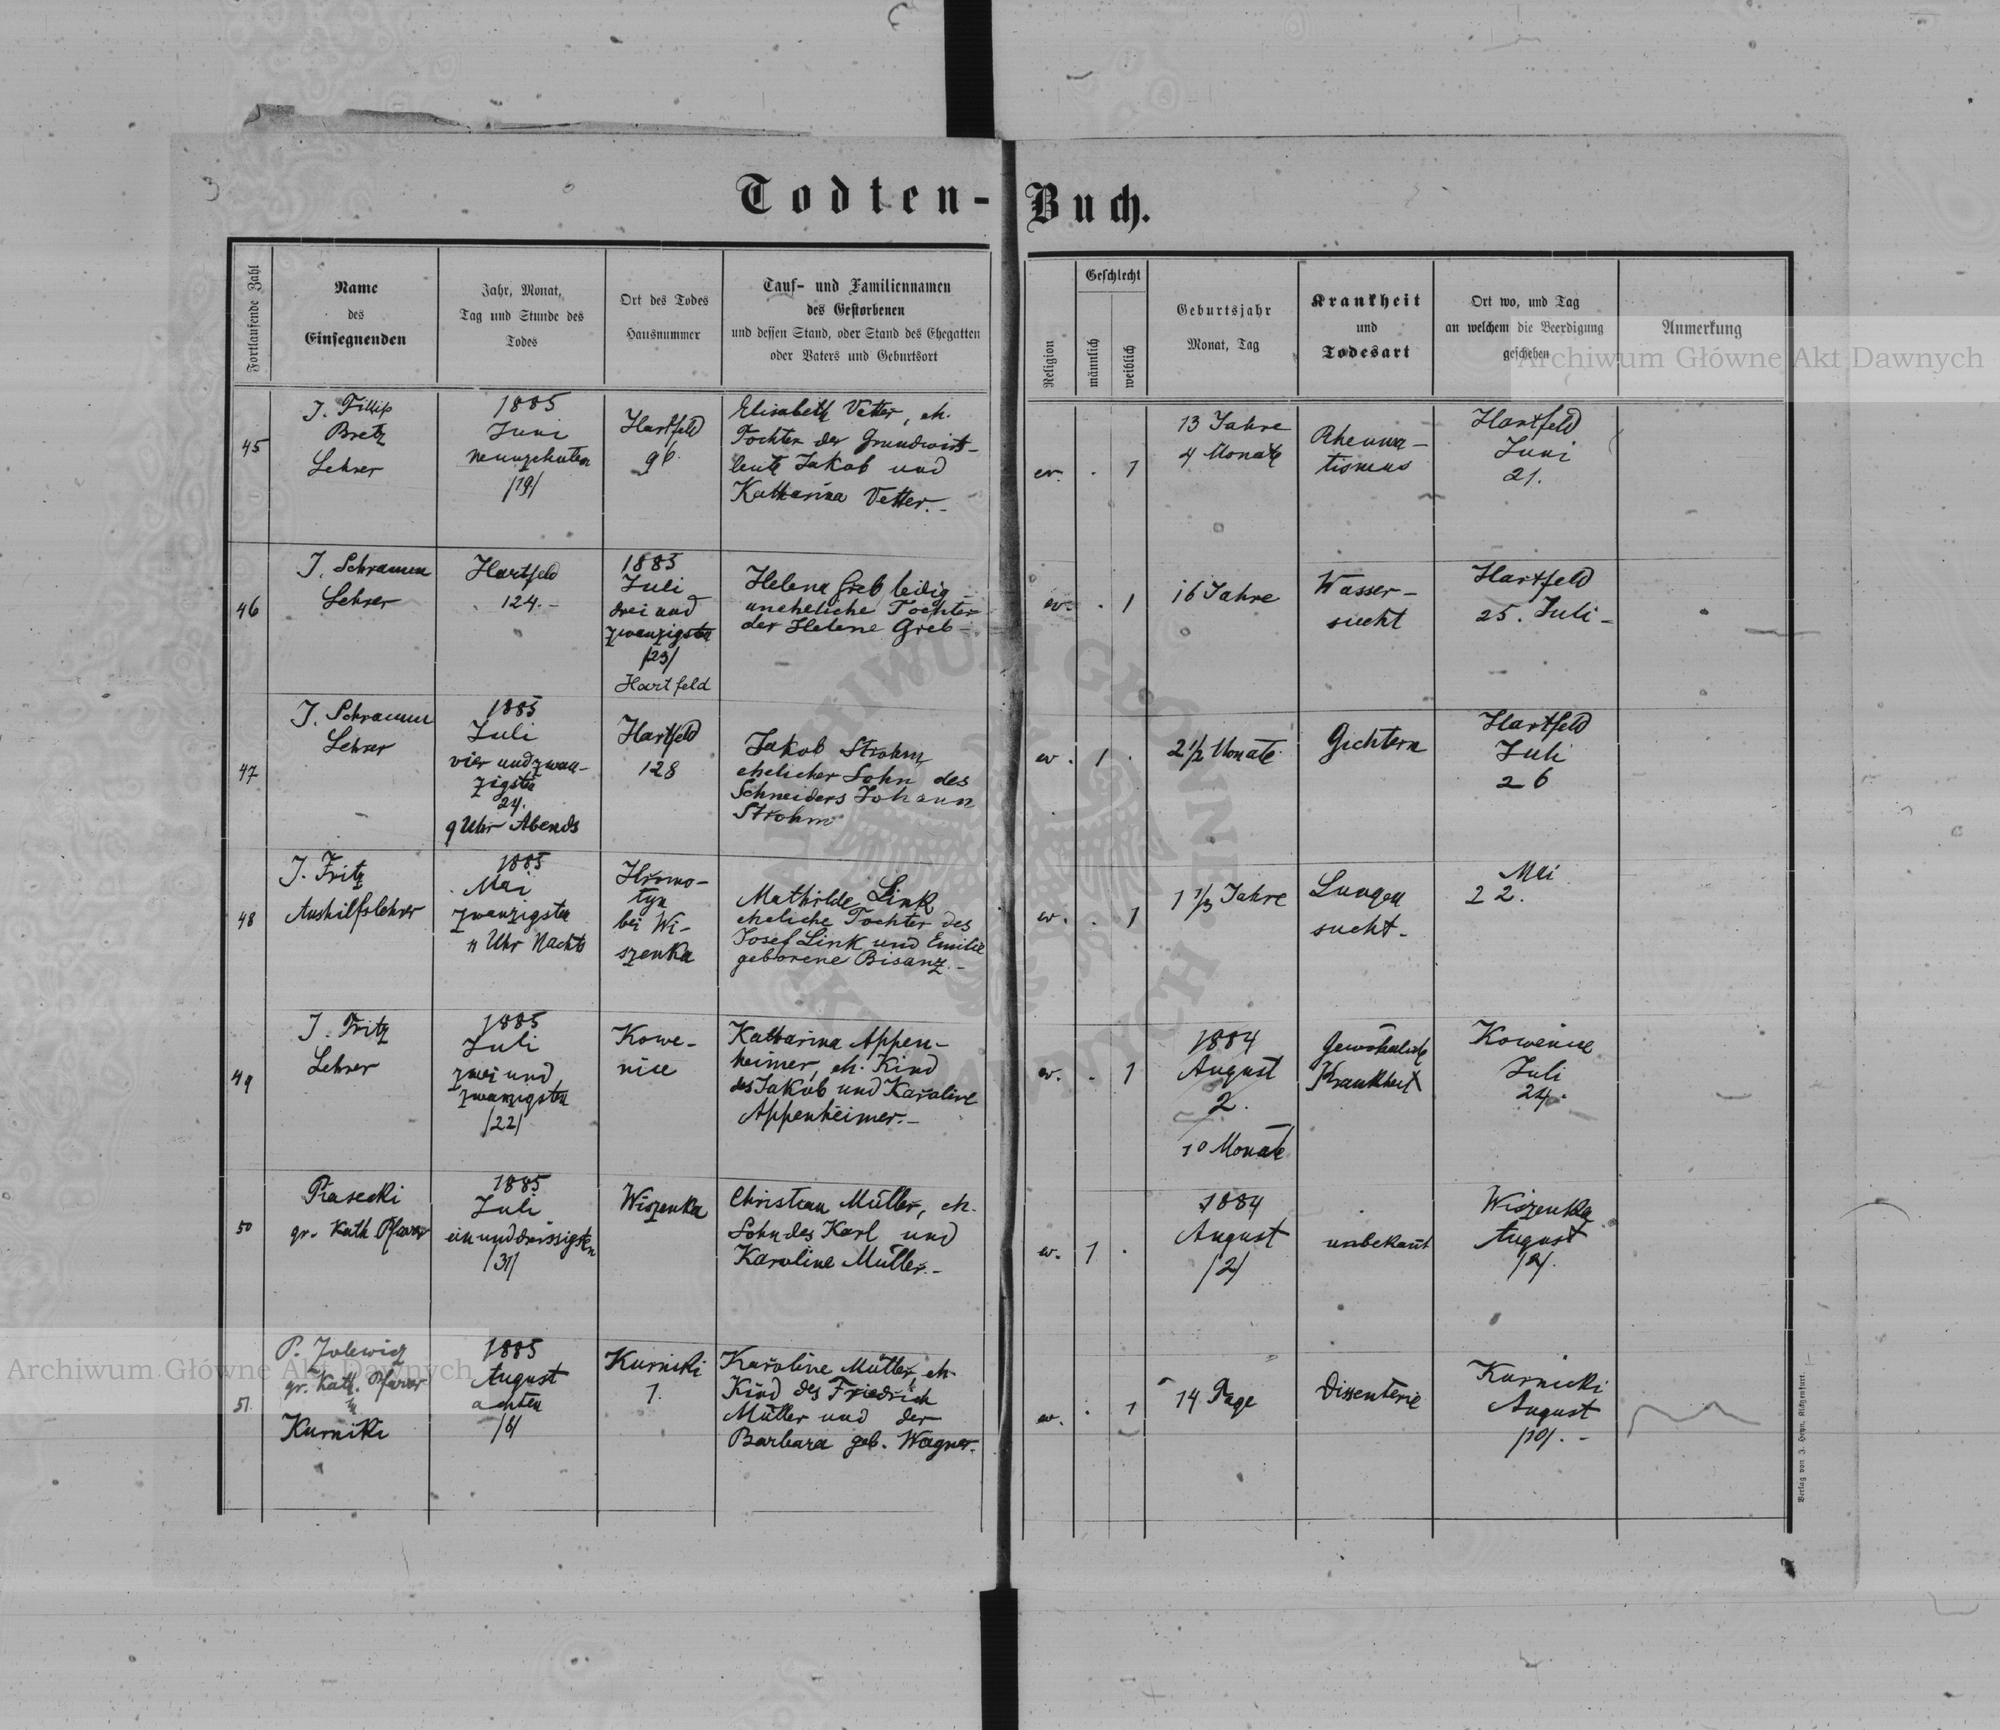 Todten-Buch.
Fortlaufende Zahl
Name
des
Einsegnenden
Jahr, Monat,
Tag und Stunde des
Todes
Ort des Todes
Hausnummer
Tauf- und Familiennamen
des Gestorbenen
und dessen Stand, oder Stand des Ehegatten
oder Vaters und Geburtsort
Religion
Geschlecht
männlich
weiblich
Geburtsjahr
Monat, Tag
Krankheit
und
Todesart
Ort wo, und Tag
an welchem die Beerdigung
geschehen
Anmerkung
45
J. Fillip
Bretz
Lehrer
1885
Juni
neunzehnten
/19/
Hartfeld
96.
Elisabeth Vetter, eh.
Tochter der Grundwirts-
leute Jakob und
Katharina Vetter.-
ev.
.
1
13 Jahre
4 Monate
Rheuma-
tismus
Hartfeld
Juni
21.
46
J. Schramm
Lehrer
Hartfeld
124.-
1885
Juli
drei und
zwanzigsten
/23/
Hartfeld
Helena Greb ledig
uneheliche Tochter
der Helene Greb-
ev.
.
1
16 Jahre
Wasser-
sucht
Hartfeld
25. Juli-
47
J. Schramm
Lehrer
1885
Juli
vier undzwan-
zigsten
24.
9 Uhr Abends
Hartfeld
128
Jakob Strohm
ehelicher Sohn des
Schneiders Johann
Strohm
ev.
1
.
2 1/2 Monate
Gichtern
Hartfeld
Juli
26
48
J. Fritz
Aushilfslehrer
1885
Mai
zwanzigsten
11 Uhr Nachts
bei Wi-
szenka
Mathilde Link
eheliche Tochter des
Josef Link und Emilie
geborene Bisanz.-
ev.
.
1
1 1/3 Jahre
Lungen
sucht-
Mai
22.
49
J. Fritz
Lehrer
1885
Juli
zwei und
zwanzigsten
/22/
Kowe-
nice
Katharina Appen-
heimer, eh. Kind
des Jakob und Karoline
Appenheimer.-
ev.
.
1
1884
August
2.
10 Monate
Gewöhnliche
Krankheit
Kowenice
Juli
24.
50
Piasecki
gr. Kath Pfarrer
1885
Juli
einunddreissigsten
/31/
Wiszenka
Christian Müller, eh.
Sohn des Karl und
Karoline Müller.-
ev.
1
.
1884
August
/2/
unbekannt
Wiszenka
August
/2/.
51.
gr. Kath. Pfarrer
in
Kurniki
1885
August
achten
/8/
Kurniki
1.
Karoline Müller, eh.
Kind des Friedrich
Müller und der
Barbara geb. Wagner.
ev.
.
1
14 Tage
Dissenterie
Kurnicki
August
/10/.-
Verlag von J. Heyn, Klagenfurt.
Archiwum Główne Akt Dawnych
Archiwum Główne Akt Dawnych
ARCHIWUM GŁÓWNE AKT DAWNYCH